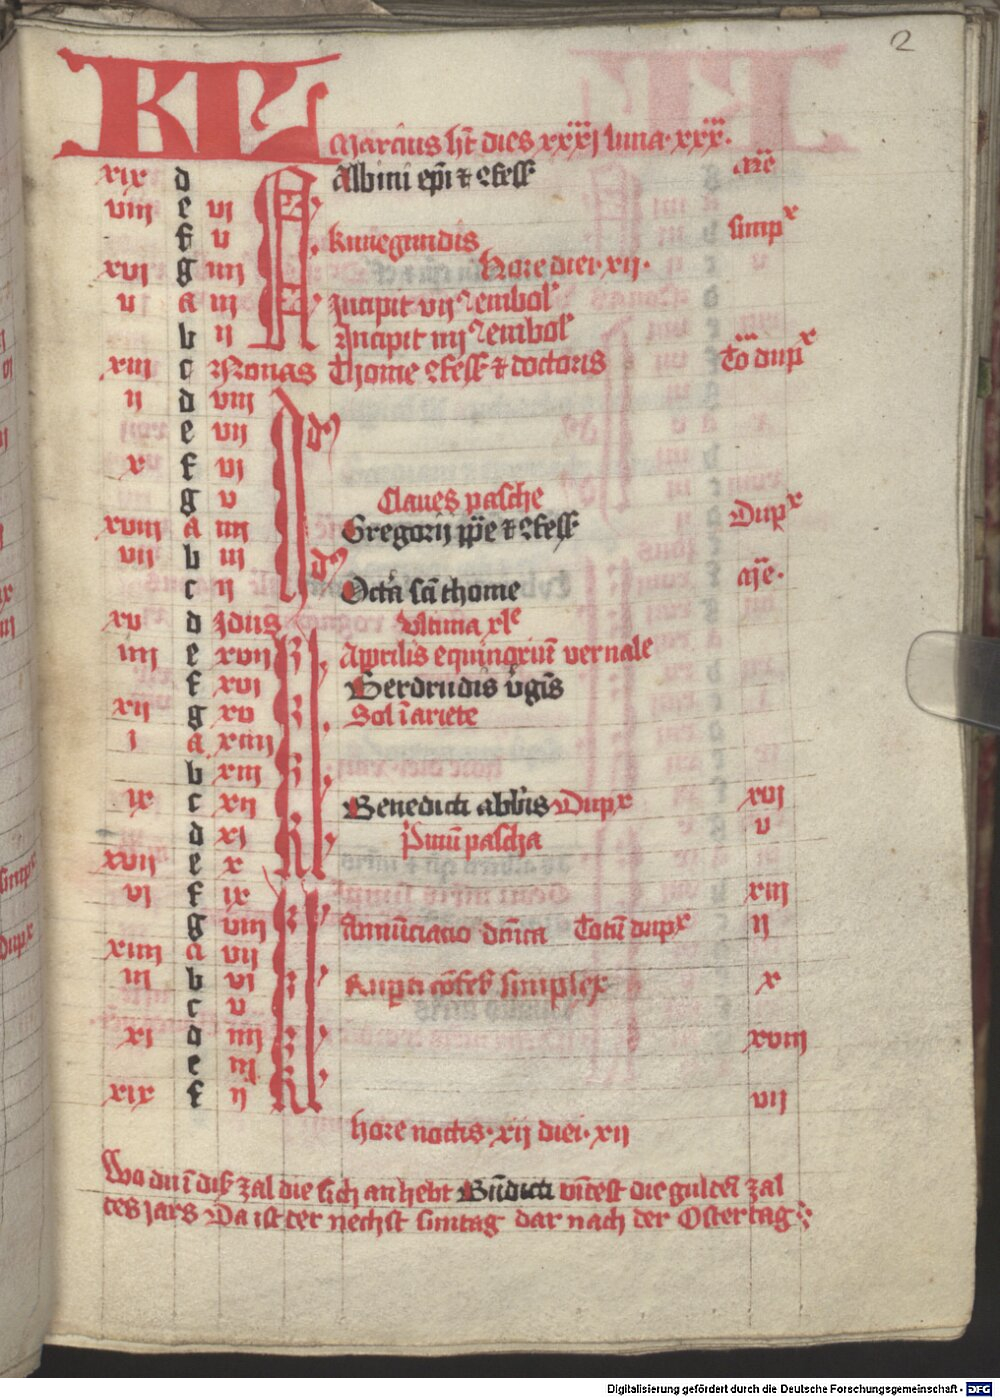 2
KL Marcius ht dies xxxj luna xxx.
xix d Albini epi et cfess are
viij e vj
f v kunegundis simpx
xvj g iiij Hore diei xij.
v a iij Incipit vij embol
b ij Incipit iiij embol
xiij c Nonas Thome cfess et doctoris To dupx
ij d viij
e vij
x f vj
g v Claues pasche
xviij a iiij Gregorij ppe et cfess Dupx
vij b iij
c ij Octa sci thome are.
xv d Idus Vltima xle
iiij e xvij Aprilis equinoxium vernale
f xvj Gerdrudis vgis
xij g xv Sol i ariete
j a xiiij
b xiij
ix c xij Benedicti abbis Dupx xvj
d xj Primu pascha v
xvij e x
vj f ix xiij
g viij Annuciacio dnica Totu dupx ij
xiiij a vij
iij b vj Ruperti cofes simplex x
c v
xj d iiij xviij
e iij
xix f ij vij
hore noctis. xij diei. xij
Wo du i diss zal die sich an hebt Bndicti vindest die gulden zal
des jars Da ist der nechst suntag dar nach der Ostertag
Digitalisierung gefördert durch die Deutsche Forschungsgemeinschaft - DFG